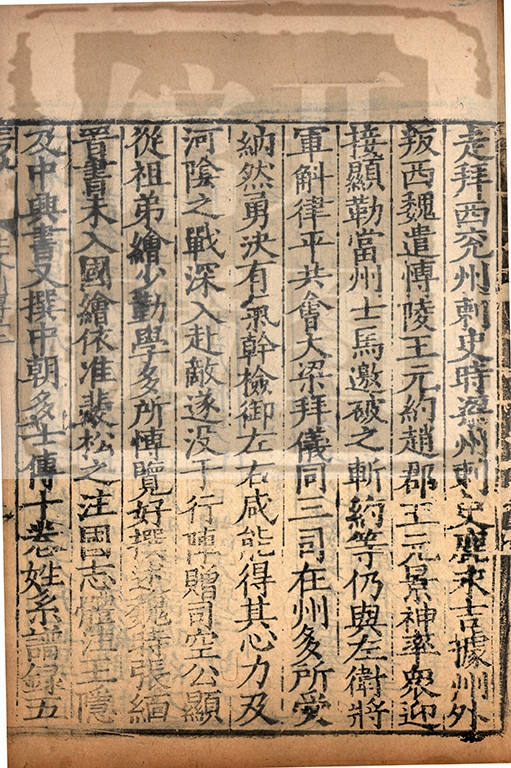 走拜西兖州刺史時潁州刺史鹿永吉據州外
叛西魏遣博陵王元約趙郡王元景神率衆迎
接顯勒當州士馬邀破之斬約等仍與左衛將
軍斛律平共會大梁拜儀同三司在州多所受
納然勇決有氣幹檢御左右咸能得其心力及
河陰之戰深入赴敵遂沒于行陣贈司空公顯
從祖弟繪少勤學多所博覽好撰述魏時張緬
晋書未入國繪依准裴松之注國志體注王隱
及中興書又撰中朝多士傳十卷姓系譜録五